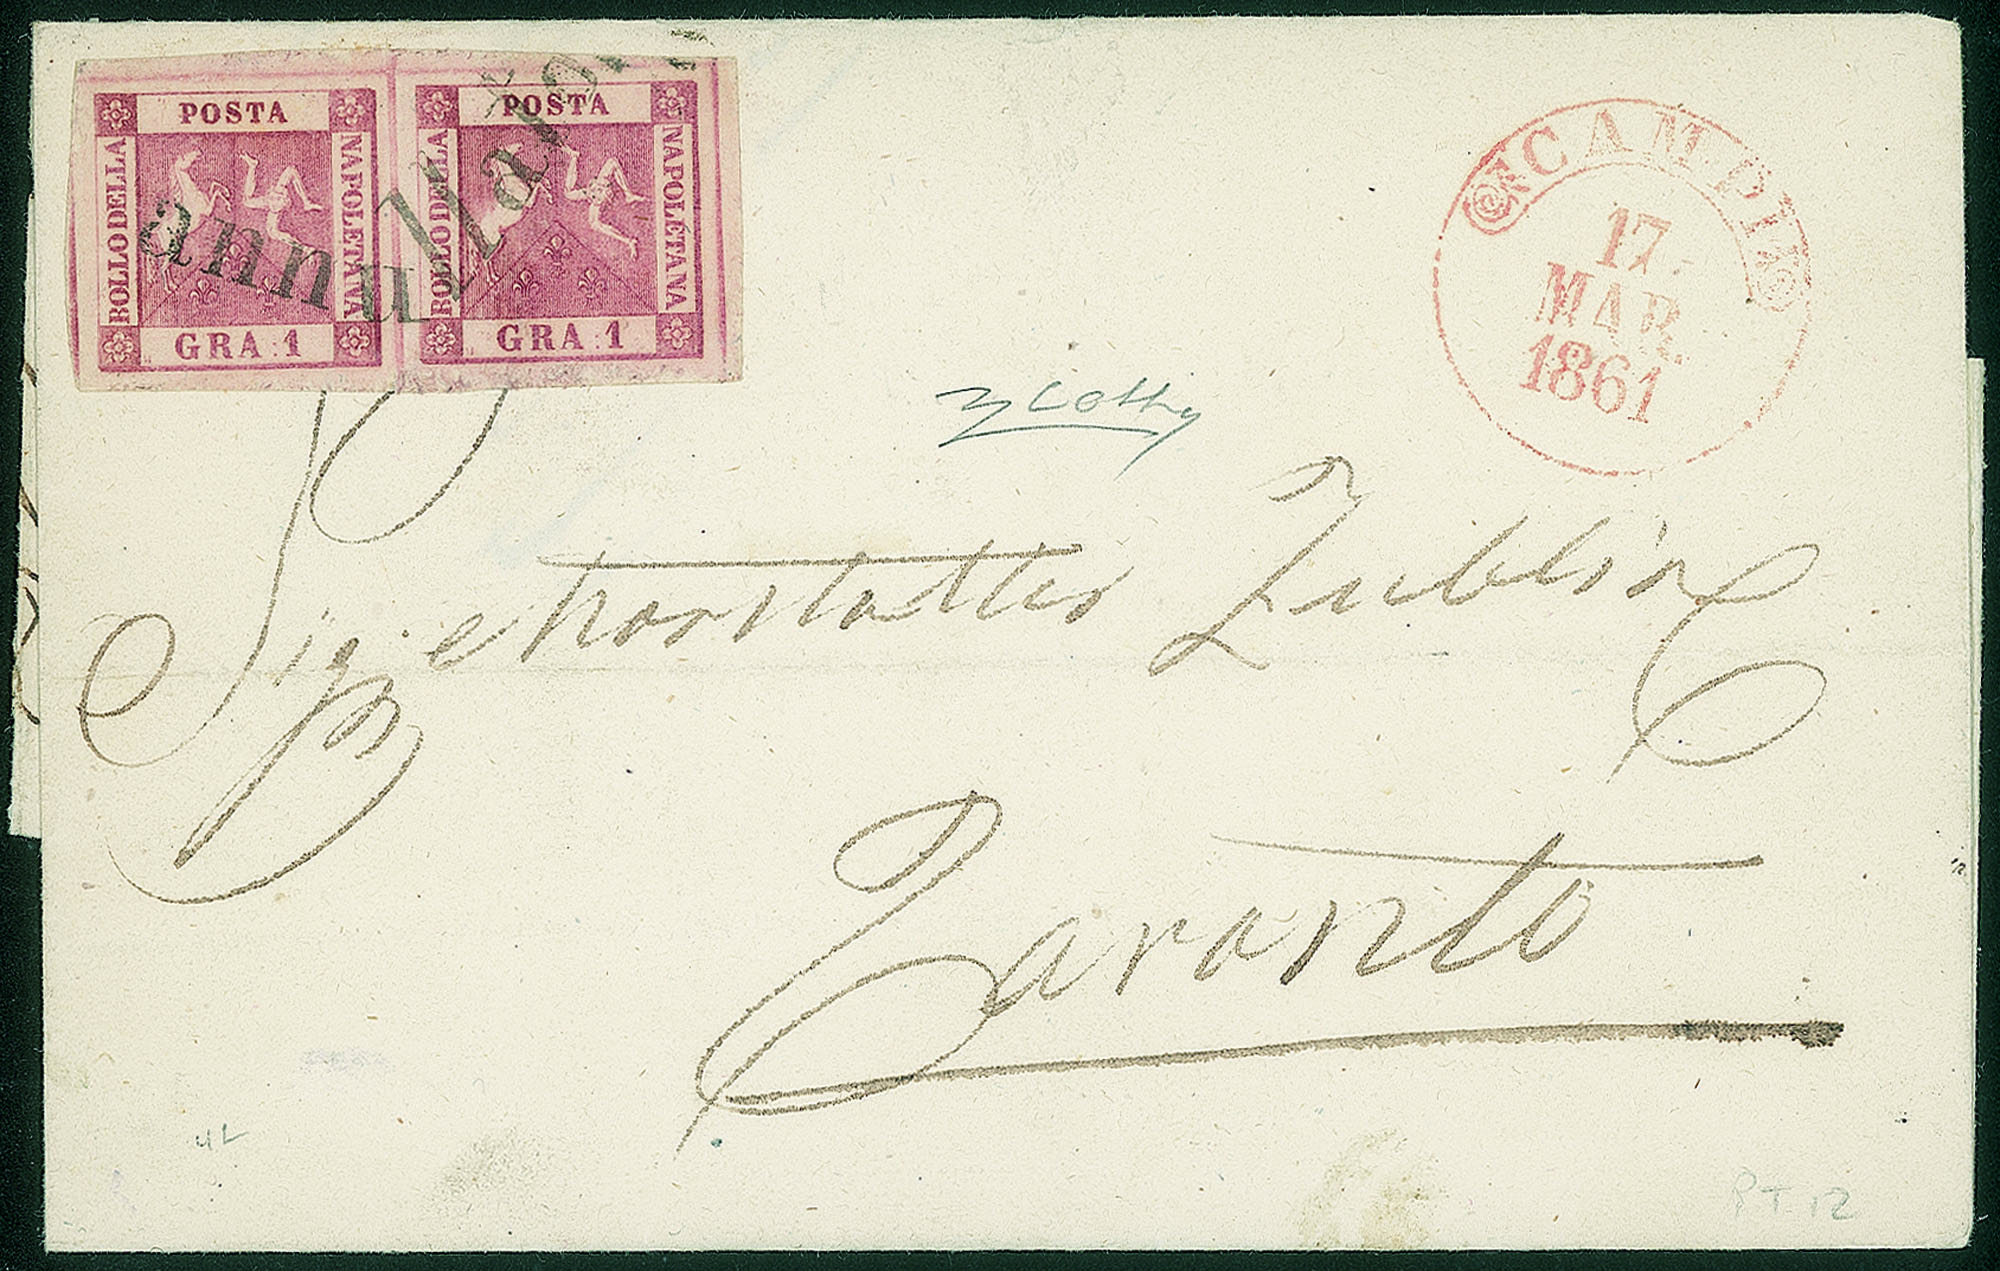 POSTA
BOLLO DELLA
NAPOLETANA
GRA: 1
POSTA
BOLLO DELLA
NAPOLETANA
GRA: 1
annullato
CAMDI
17
MAR
1861
Sig.
Zublin
Taranto
PT 12